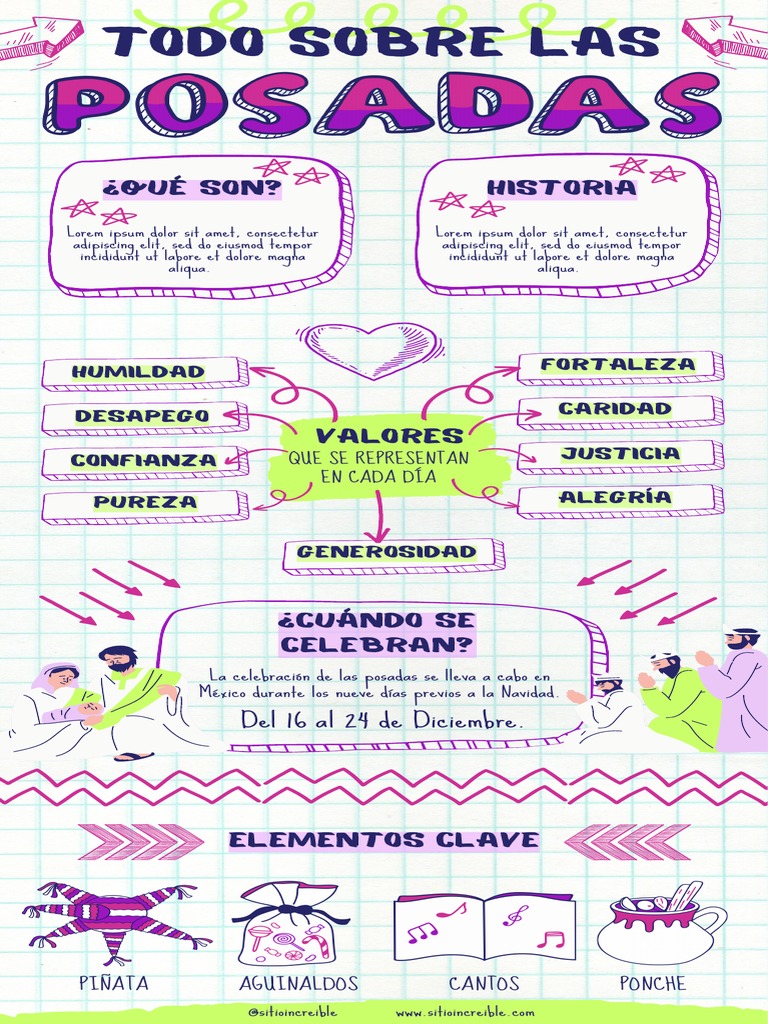 TODO SOBRE LAS
POSADAS
¿QUÉ SON?
Lorem ipsum dolor sit amet, consectetur
adipiscing elit, sed do eiusmod tempor
incididunt ut labore et dolore magna
aliqua.
HISTORIA
Lorem ipsum dolor sit amet, consectetur
adipiscing elit, sed do eiusmod tempor
incididunt ut labore et dolore magna
aliqua.
HUMILDAD
DESAPEGO
CONFIANZA
PUREZA
VALORES
QUE SE REPRESENTAN
EN CADA DÍA
FORTALEZA
CARIDAD
JUSTICIA
ALEGRÍA
GENEROSIDAD
¿CUÁNDO SE
CELEBRAN?
La celebración de las posadas se lleva a cabo en
México durante los nueve días previos a la Navidad.
Del 16 al 24 de Diciembre.
ELEMENTOS CLAVE
PIÑATA
AGUINALDOS
CANTOS
PONCHE
@sitioincreible
www.sitioincreible.com